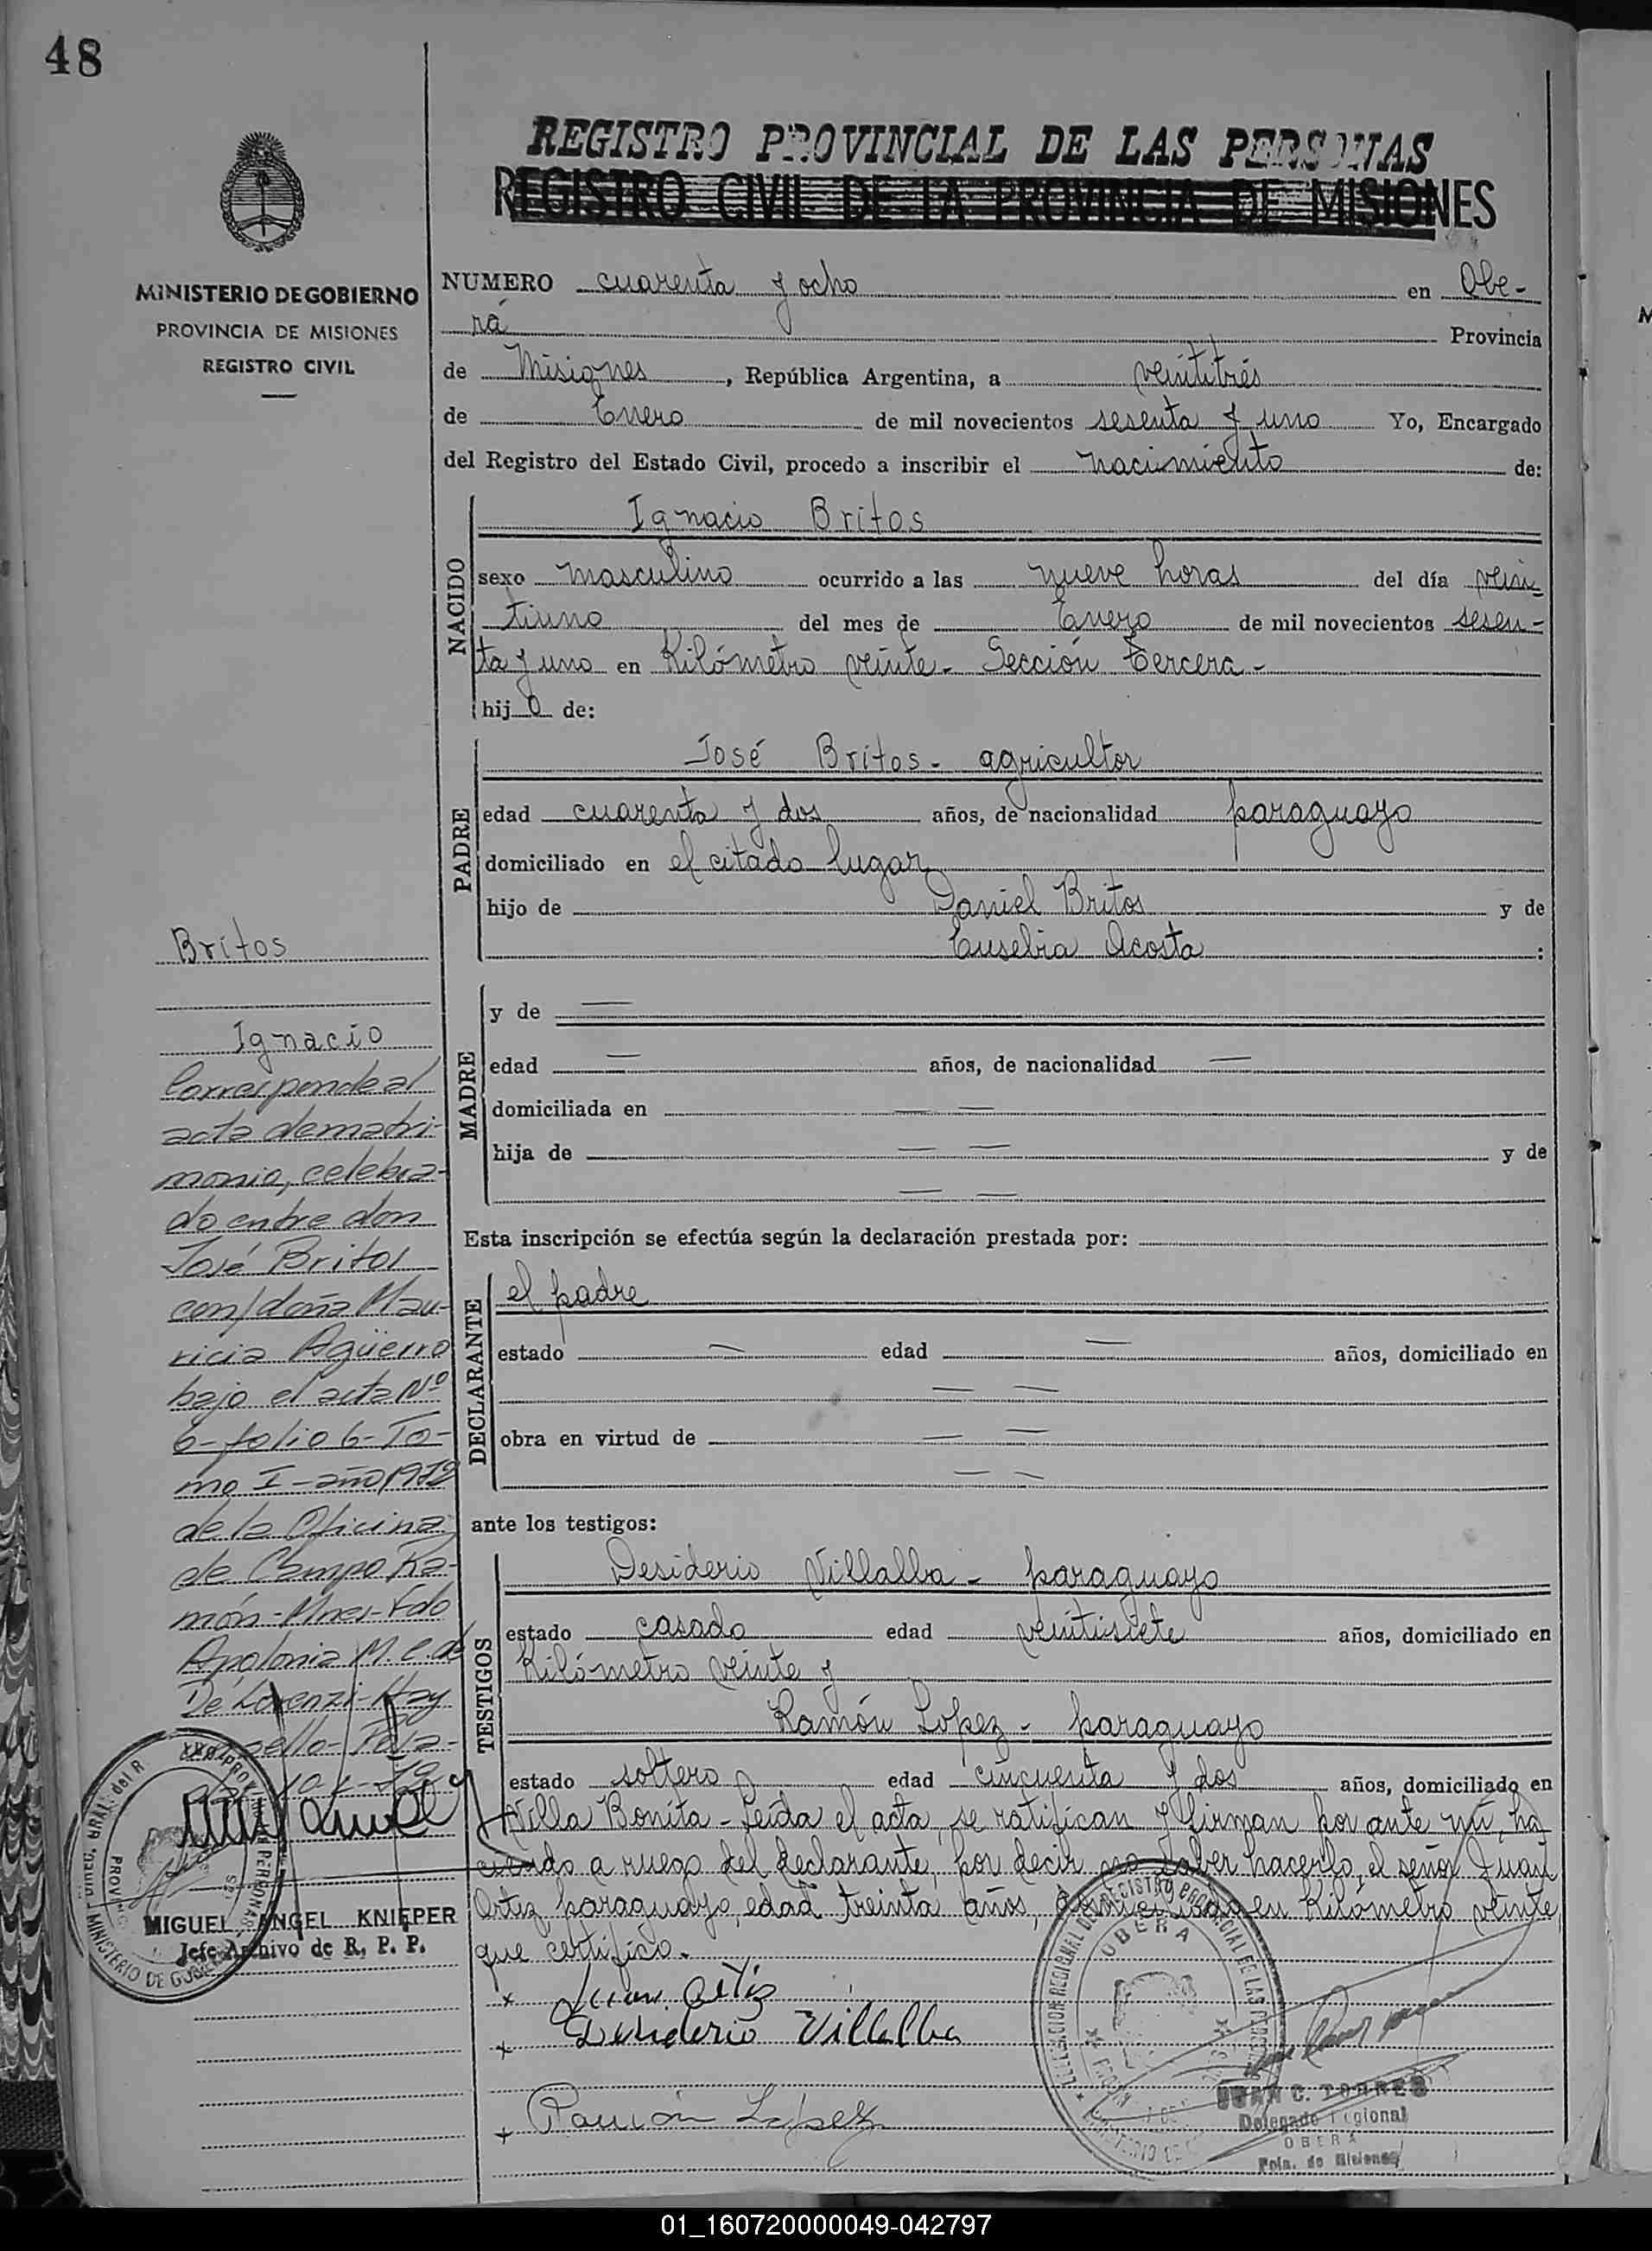 48
REGISTRO PROVINCIAL DE LAS PERSONAS
REGISTRO CIVIL DE LA PROVINCIA DE MISIONES
MINISTERIO DE GOBIERNO
PROVINCIA DE MISIONES
REGISTRO CIVIL
NUMERO cuarenta y ocho en Obe-
rá Provincia
de Misiones, República Argentina, a veintitrés
de Enero de mil novecientos sesenta y uno Yo, Encargado
del Registro del Estado Civil, procedo a inscribir el nacimiento de:
NACIDO
Ignacio Britos
sexo masculino ocurrido a las nueve horas del día vein
tiuno del mes de Enero de mil novecientos sesen-
ta y uno en Kilómetro veinte - Sección Tercera -
hijo de:
PADRE
José Britos - agricultor
edad cuarenta y dos años, de nacionalidad paraguayo
domiciliado en el citado lugar
hijo de Daniel Britos y de
Eusebia Acosta :
MADRE
y de —
edad — años, de nacionalidad —
domiciliada en — —
hija de — — y de
— —
Esta inscripción se efectúa según la declaración prestada por:
DECLARANTE
el padre
estado — edad — años, domiciliado en
— —
obra en virtud de — —
— —
ante los testigos:
TESTIGOS
Desiderio Villalba - paraguayo
estado casado edad veintisiete años, domiciliado en
Kilómetro veinte y
Ramón Lopez - paraguayo
estado soltero edad cincuenta y dos años, domiciliado en
Villa Bonita - Leída el acta, se ratifican y firman por ante mí, ha
ciendo a ruego del declarante, por decir no saber hacerlo, el señor Juan
Ortiz, paraguayo, edad treinta años, domiciliado en Kilómetro veinte
que certifico.
x Juan Ortiz
x Desiderio Villalba
x Ramón López
JUAN C. TORRES
Delegado Regional
OBERA
Pcia. de Misiones
OBERA
Britos
Ignacio
Corresponde al
acta de matri-
monio, celebra-
do entre don
José Britos
con/doña Mau-
ricia Agüerro
bajo el acta Nº
6-folio 6-To-
mo I-año 1972
de la Oficina
de Campo Ra-
món-Mnes-Fdo
Apolonia M.C. de
De Lorenzi-Hay
sello-
MIGUEL ANGEL KNIEPER
Jefe Archivo de R. P. P.
01_160720000049-042797